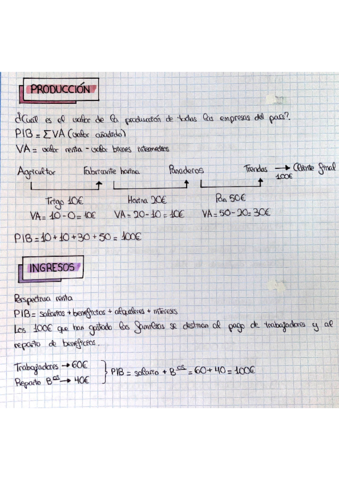 PRODUCCIÓN
¿Cuál es el valor de la producción de todas las empresas del país?.
PIB = ΣVA (valor añadido)
VA = valor venta - valor bienes intermedios
Agricultor Fabricante harina Panaderos Tiendas → Cliente final
100€
Trigo 10€ Harina 20€ Pan 50€
VA = 10-0 = 10€ VA = 20-10 = 10€ VA = 50-20 = 30€
PIB = 10 + 10 + 30 + 50 = 100€
INGRESOS
Perspectiva renta
PIB = salarios + beneficios + alquileres + intereses
Los 100€ que han gastado las familias se destinan al pago de trabajadores y al
reparto de beneficios.
Trabajadores → 60€
Reparto Bcos → 40€
PIB = salario + Bcos = 60 + 40 = 100€